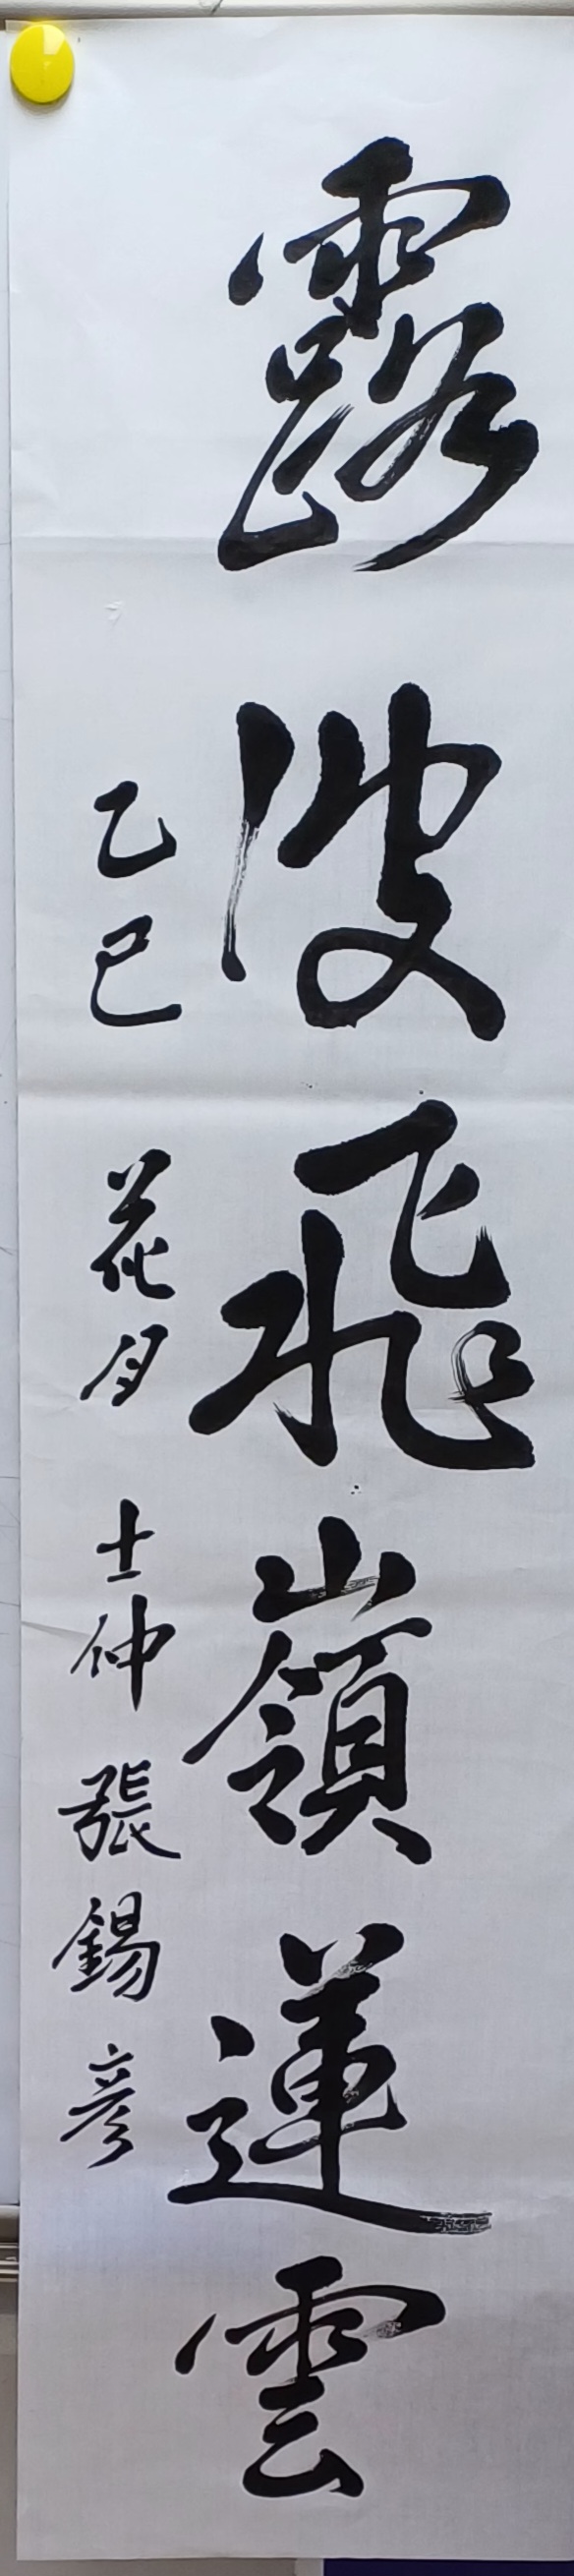 露波飛嶺蓮雲
乙巳 花月 士仲 張錫彥